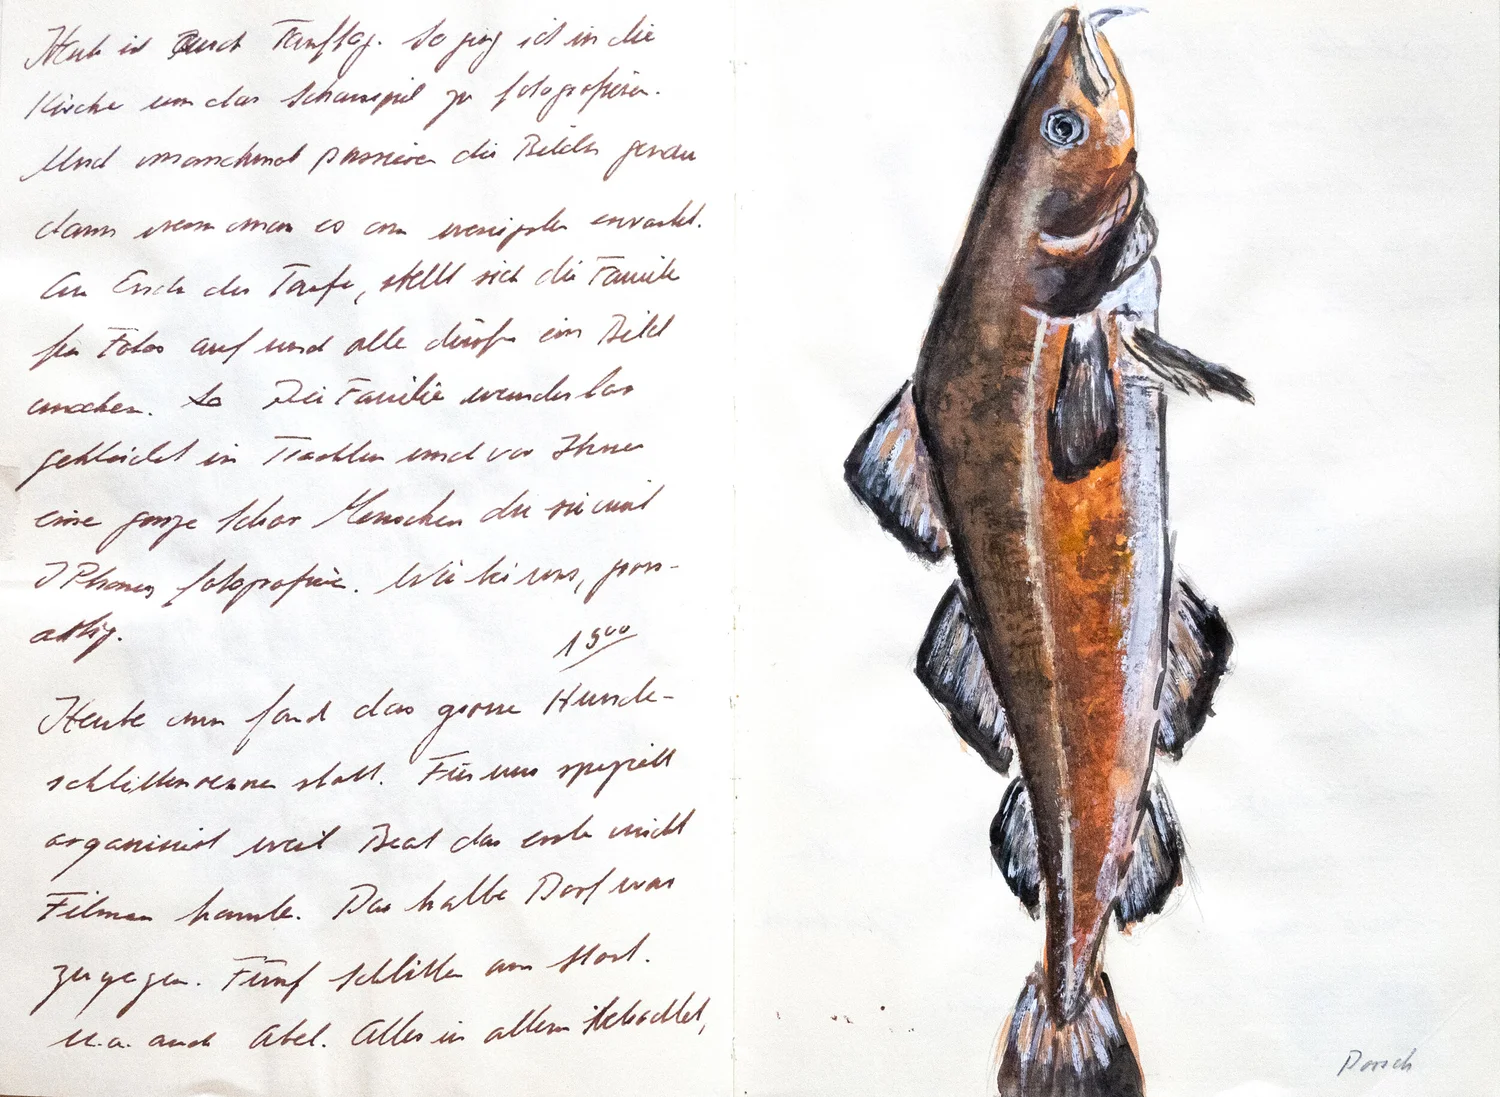 Heute ist auch Tauftag. So ging ich in die
Kirche um das Schauspiel zu fotografieren.
Und manchmal passieren die Bilder genau
dann wenn man es am wenigsten erwartet.
Am Ende der Taufe, stellt sich die Familie
für Fotos auf und alle dürfen ein Bild
machen. So Die Familie wunderbar
gekleidet in Trachten und vor Ihnen
eine ganze Schar Menschen die sie mit
I Phones fotografieren. Wie bei uns, gross-
artig.
15⁰⁰
Heute nun fand das grosse Hunde-
schlittenrennen statt. Für uns speziell
organisiert weil Beat das erste nicht
Filmen konnte. Das halbe Dorf war
zugegen. Fünf Schlitten am Start.
u.a. auch Abel. Alles in allem
Dorsch